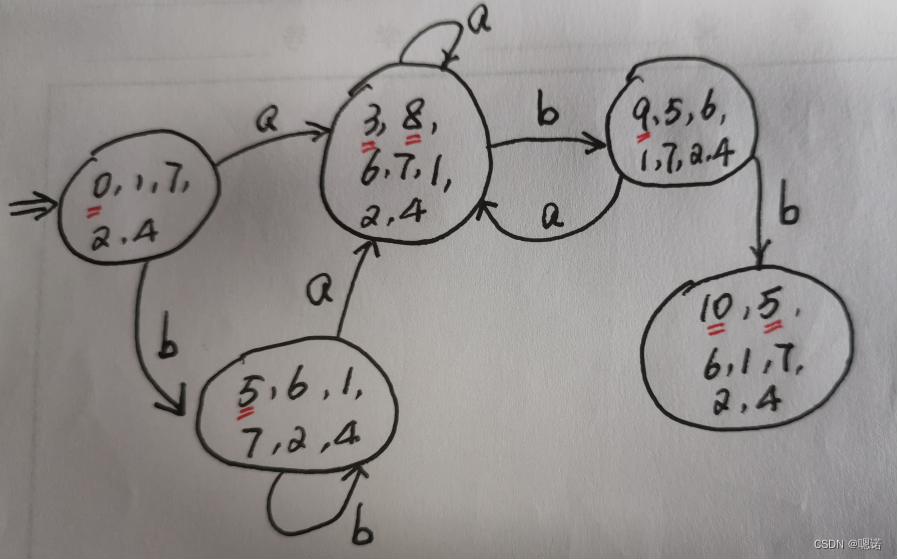 a
3, 8,
6, 7, 1,
2, 4
b
9, 5, 6,
1, 7, 2, 4
a
0, 1, 7,
2, 4
a
b
b
a
5, 6, 1,
7, 2, 4
b
10, 5,
6, 1, 7,
2, 4
CSDN @嗯诺